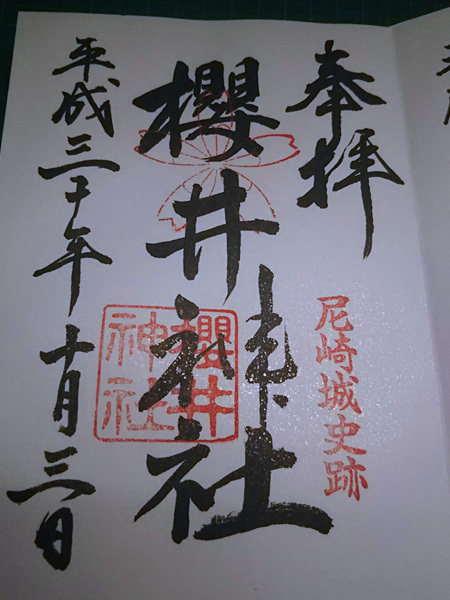 奉拝
尼崎城史跡
櫻井神社
櫻井
神社
平成三十年十月三日